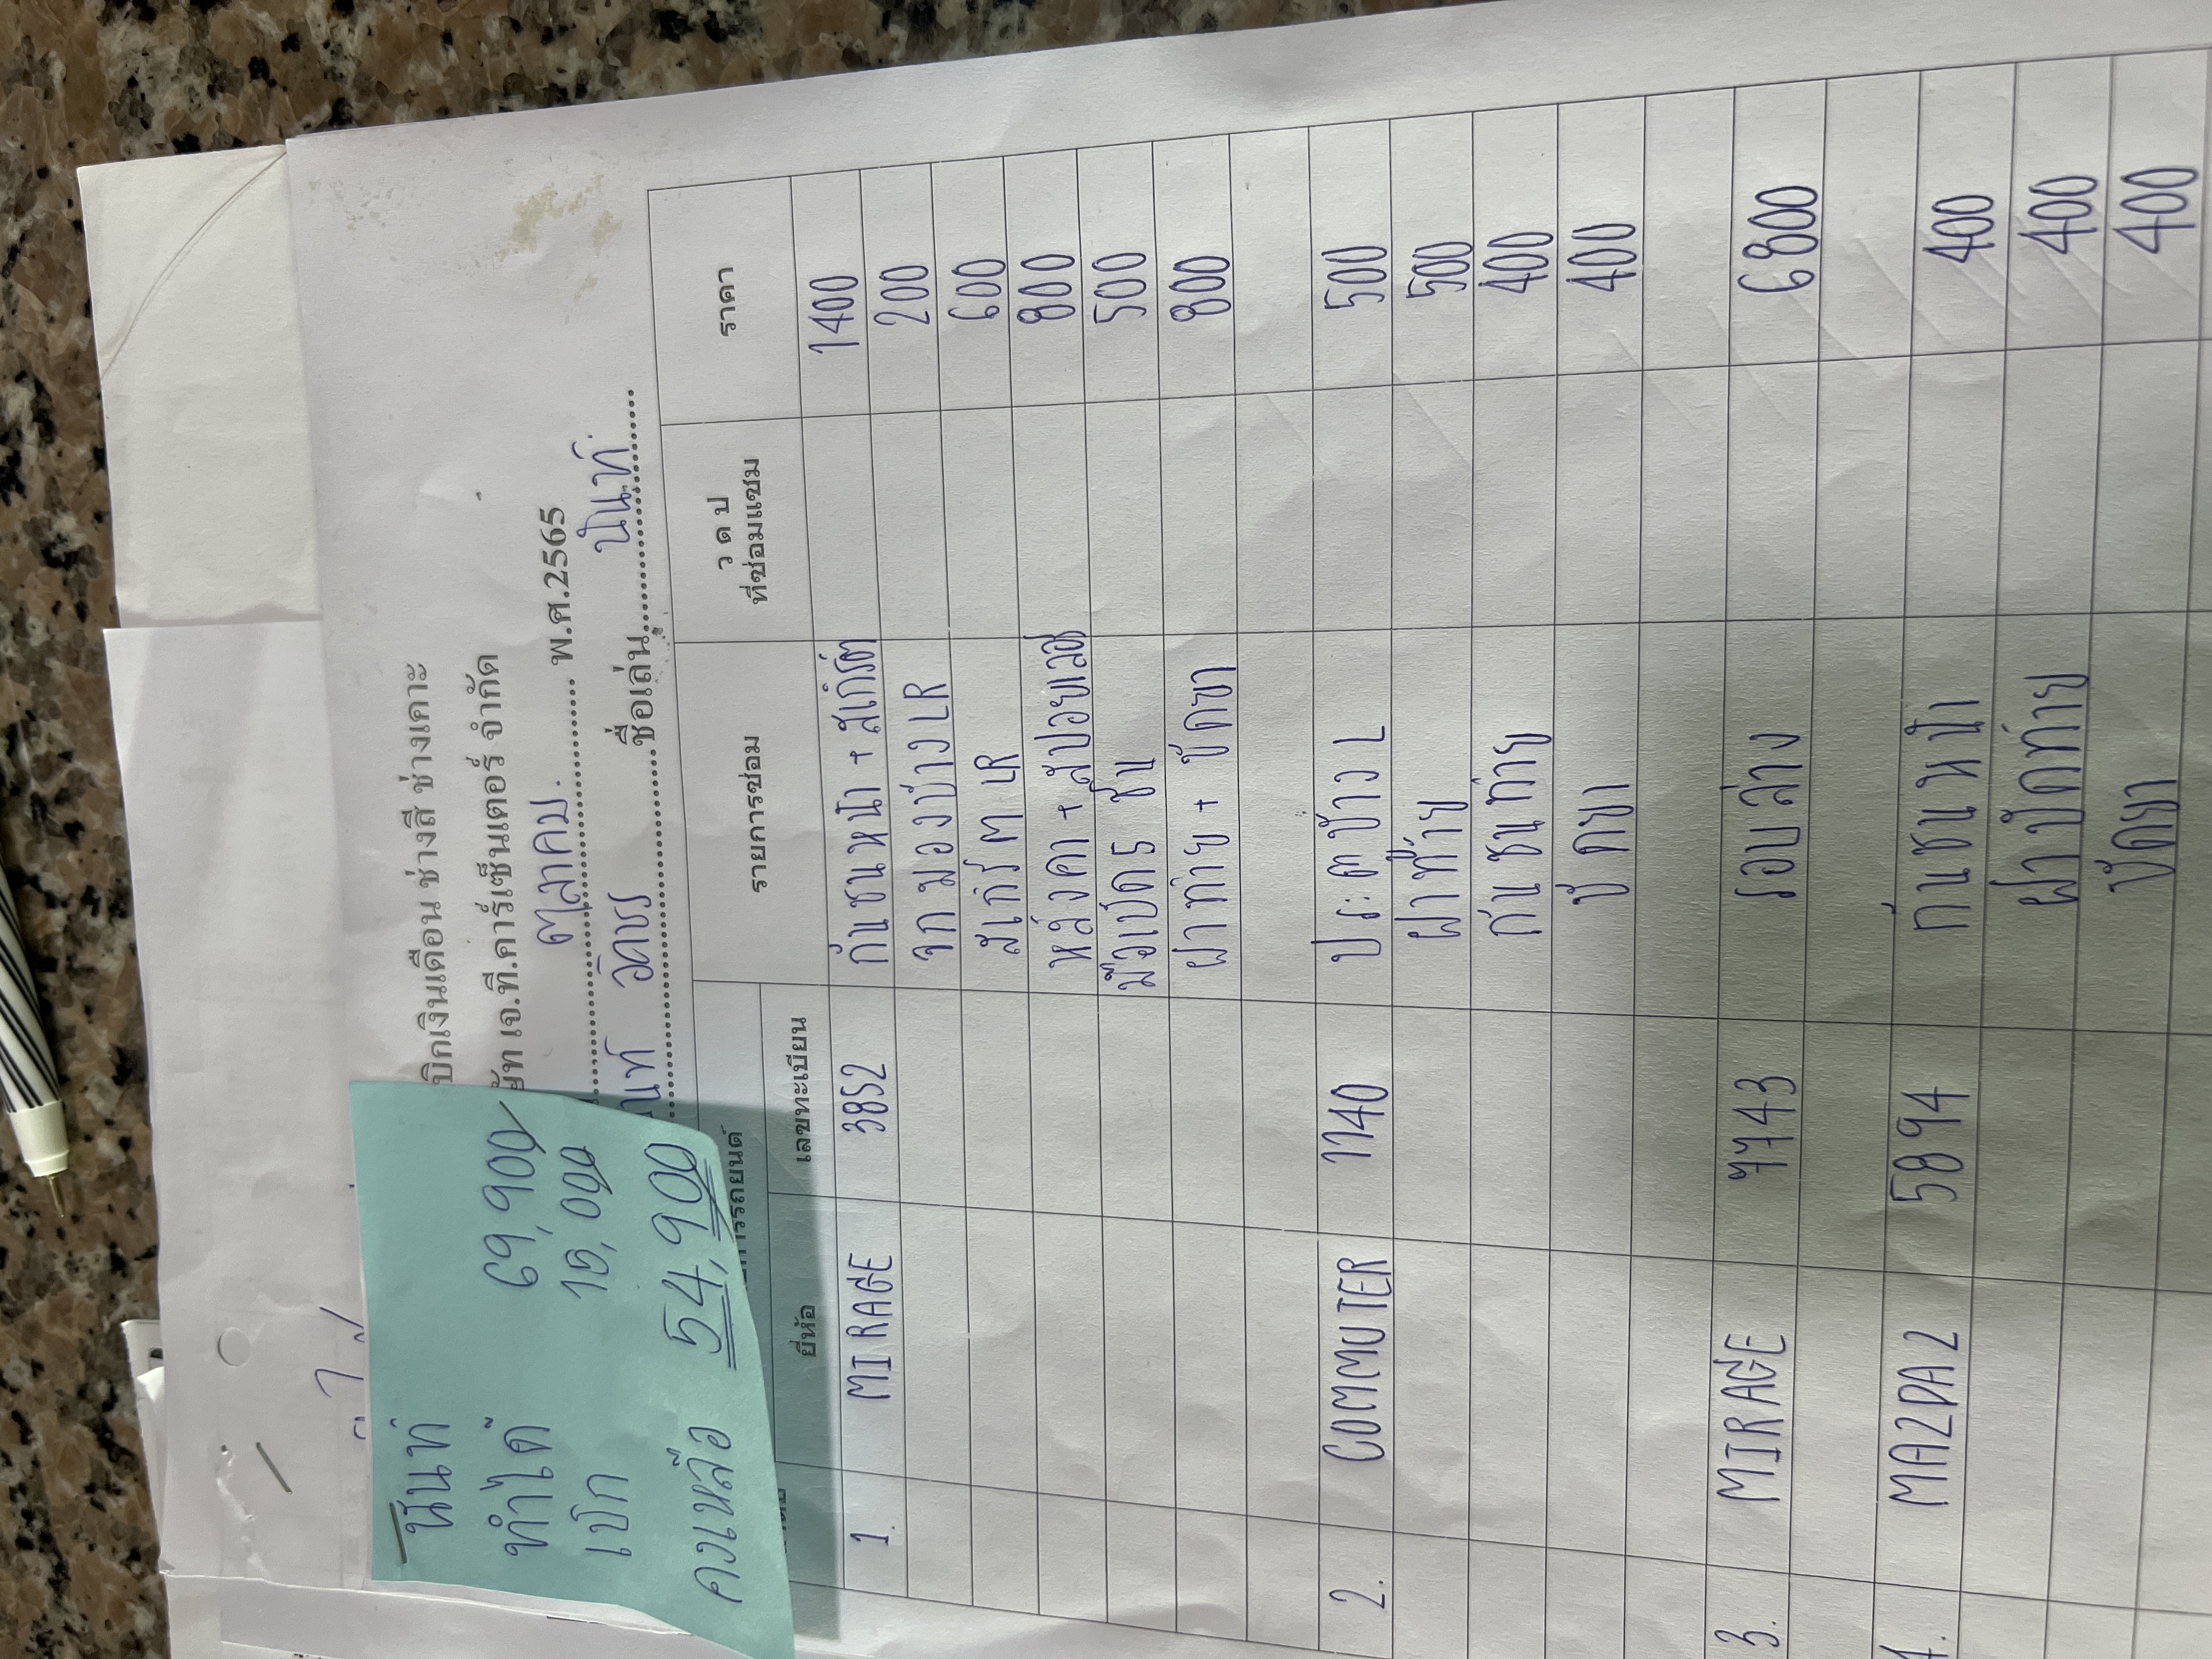 นันท์
ทำได้ 69,900
เบิก 15,000
คงเหลือ 54,900
บิกเงินเดือน ช่างสี ช่างเคาะ
ษัท เจ.ที.คาร์เซ็นเตอร์ จำกัด
ตุลาคม. พ.ศ.2565
ชื่อเล่น นันท์.
ยี่ห้อ เลขทะเบียน รายการซ่อม ว ด ป ที่ซ่อมแซม ราคา
1. MIRAGE 3852 กันชนหน้า + สเกิร์ต 1400
จกมองข้าง LR 200
สเกิร์ต LR 600
หลังคา + สปอยเลอร์ 800
500
ฝาท้าย + ขัดยา 800
2. COMMUTER 1140 ประตูข้าง L 500
ฝาท้าย 500
กันชนท้าย 400
ขัดยา 400
3. MIRAGE 7743 รอบล่าง 6800
4. MAZDA2 5894 กันชนหน้า 400
ฝาปิดท้าย 400
ขัดยา 400